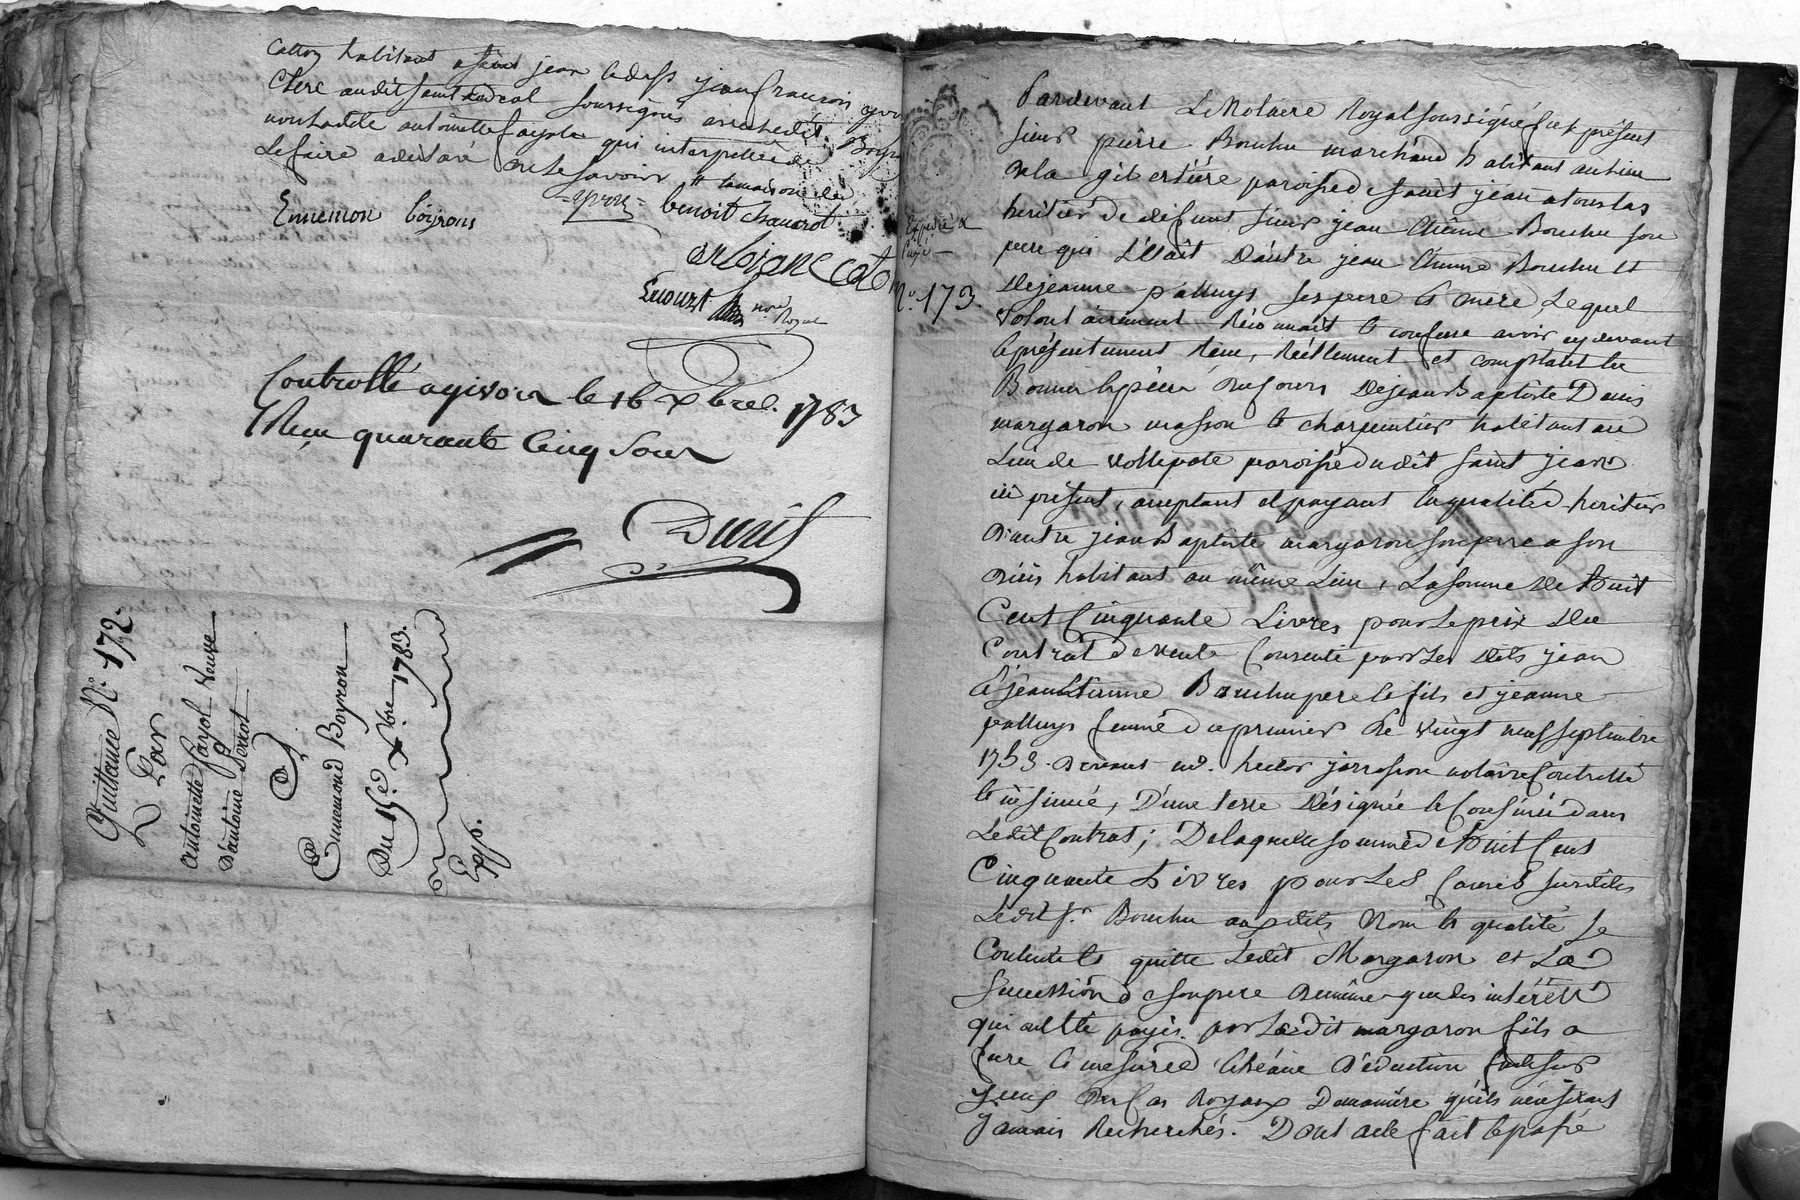 Catton habitant a saint jean ledess jeanfrancois yvon
Clerc audit saint soussignés avec ledit Boyron
non ladite antoinette fayolle qui interpellée de
le faire a declaré ne le savoir # la maison de
Ennemon boyrons
- yvon - benoit chanarot
Emourt nore Royal
Controllé a givors le 16 xbre. 1783
Reçu quarante Cinq Sous
Duril
Quittance N.o 172.
Par
Antoinette fayol veuve
D'antoine
a
Ennemond Boyron
Du 15e. Xbre 1783.
Exp.
Expedié a
Payé
N.o 173.
Pardevant Le Notaire Royal soussigné fut présent
sieur pierre Bouchu marchand habitant au lieu
de la gibertiére paroisse de saint jean a touslas
heritier de défunt sieur jean Etienne Bouchu son
pere qui L'était D'autre jean Etienne Bouchu et
De jeanne palluys ses pere & mere, Lequel
Volontairement Reconnait & confesse avoir cy devant
& présentement Reçu, Réellement et comptant en
Bonnes Espéces au cours De jean Baptiste Denis
margaron masson & charpentier habitant au
Lieu de vollepote paroisse dudit saint jean
ici présent, acceptant et payant en qualité d'heritier
D'autre jean Baptiste margaron son pere a son
décès habitant au même Lieu, La somme De huit
Cent Cinquante Livres pour Le prix Du
Contrat de vente Consenti par Les dits jean
& jean Etienne Bouchu pere & fils et jeanne
palluys femme du premier Le vingt neuf septembre
1753. Devant me. hector jarrosson notaire Controllé
& insinué, D'une terre Désignée & Confinée dans
Ledit Contrat; De laquelle somme de huit Cent
Cinquante Livres pour Les Causes susdites
Ledit sr. Bouchu aux dits Nom & qualité se
Contente & quitte Ledit Margaron et La
Succession de son pere De même que des intérêts
qui ont été payés par Ledit margaron fils a
fure & mesure d'Echéance Déduction faite sur
iceux Des Cas Royaux De maniére qu'ils n'en seront
Jamais Recherchés. Dont acte fait & passé